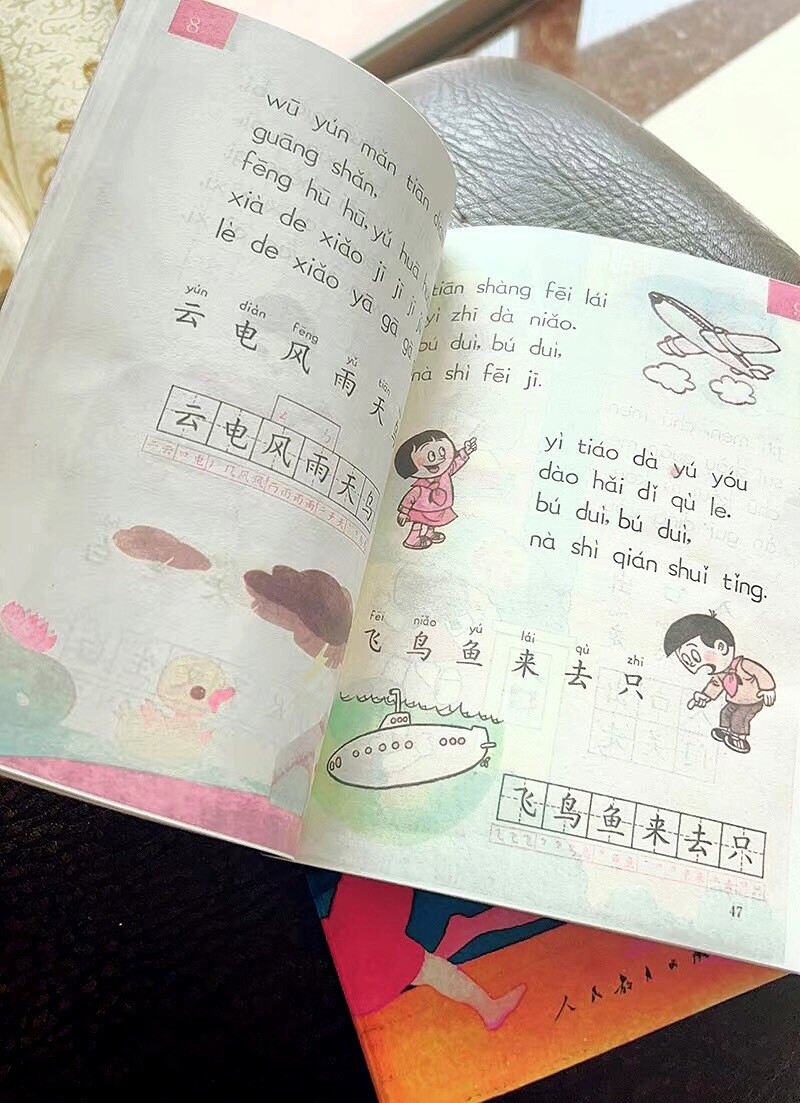 8
wū yún mǎn tiān
guāng shǎn,
fēng hū hū, yǔ huā
xià de xiǎo jī jī jī
lè de xiǎo yā gā gā
yún diàn fēng yǔ tiān
云 电 风 雨 天
云 电 风 雨 天 鸟
tiān shàng fēi lái
yì zhī dà niǎo.
bú duì, bú duì,
nà shì fēi jī.
yì tiáo dà yú yóu
dào hǎi dǐ qù le.
bú duì, bú duì,
nà shì qián shuǐ tǐng.
fēi niǎo yú lái qù zhī
飞 鸟 鱼 来 去 只
飞 鸟 鱼 来 去 只
47
人民教育出版